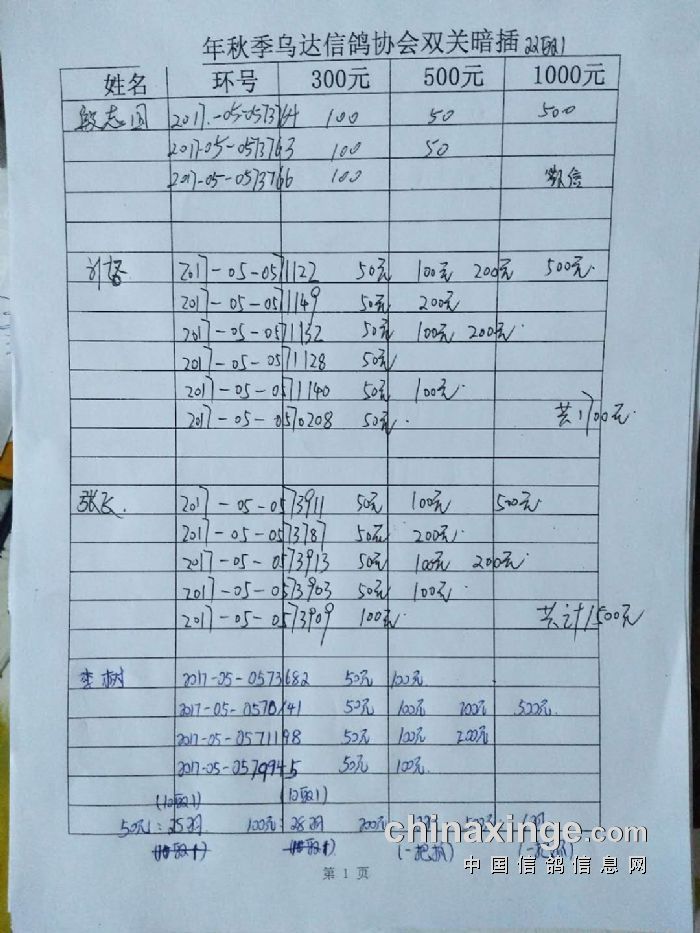 年秋季乌达信鸽协会双关暗插 22取1
姓名 环号 300元 500元 1000元
殷志国 2017-05-0573764 100 50 500
2017-05-0573763 100 50
2017-05-0573766 100 微信
2017-05-0571122 50元 100元 200元 500元
2017-05-0571149 50元 200元
2017-05-0571132 50元 100元 200元
2017-05-0571128 50元
2017-05-0571140 50元 100元
2017-05-0570208 50元 共1700元
张飞 2017-05-0573911 50元 100元 500元
2017-05-0573787 50元 200元
2017-05-0573913 50元 100元 200元
2017-05-0573903 50元 100元
2017-05-0573909 100元 共计1500元
李树 2017-05-0573682 50元 100元
2017-05-0570141 50元 100元 200元 500元
2017-05-0571198 50元 100元 200元
2017-05-0579945 50元 100元
(10取1) (10取1)
50元:25羽 100元:28羽 200元 500元
(10取1) (10取1) (一把抓) (一把抓)
chinaxinge.com
中国信鸽信息网
第 1 页